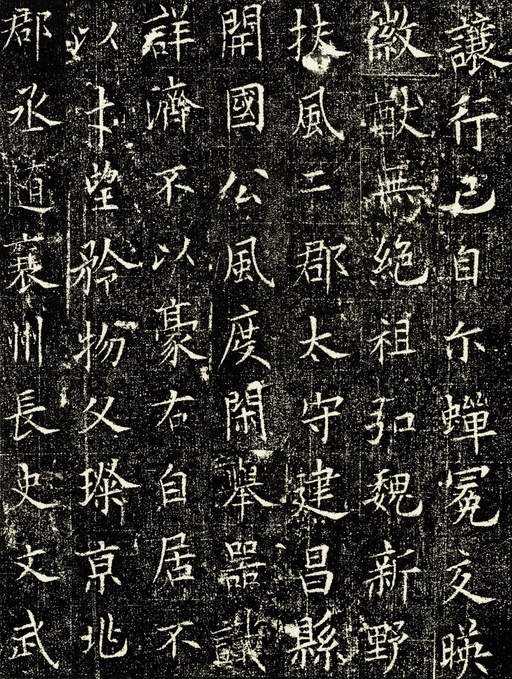 讓行己自尒蟬冕交暎
徽猷無絶祖弘魏新野
扶風二郡太守建昌縣
開國公風度閑舉器識
詳濟不以豪右自居不
以才望矜物父璨京兆
郡丞随襄州長史文武